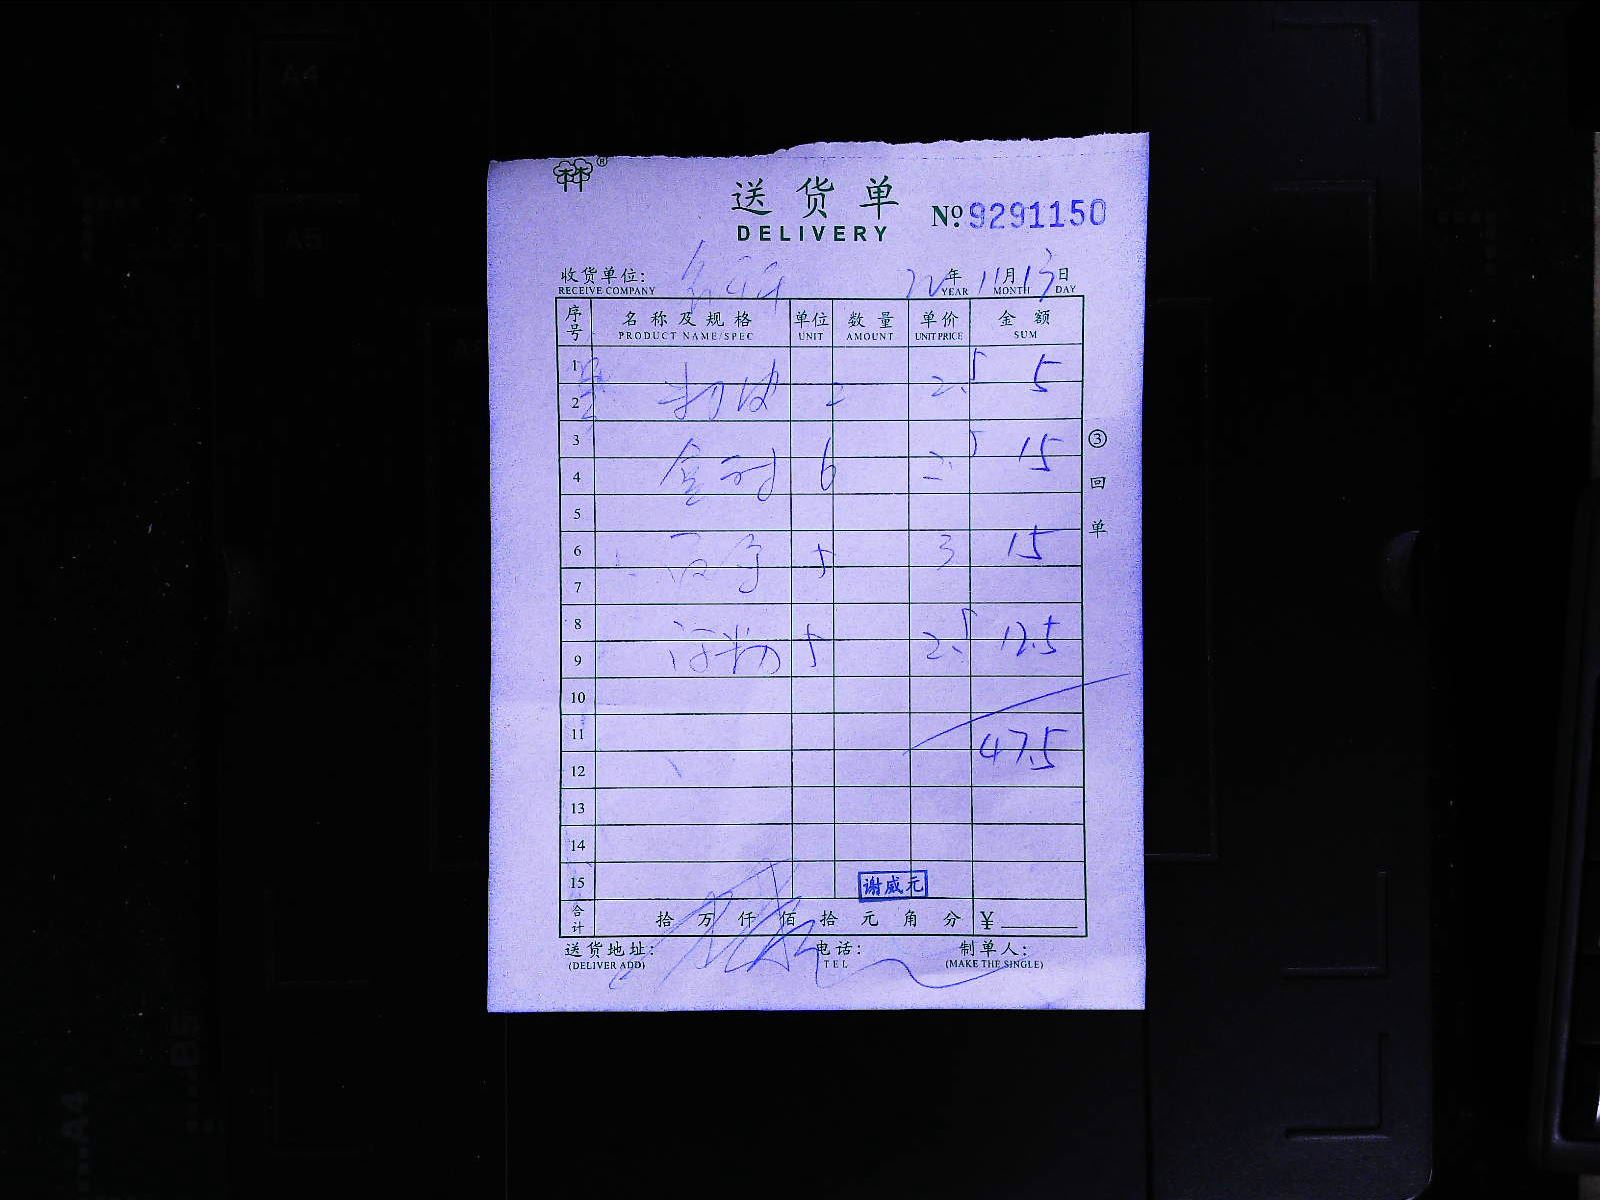 林®
送货单
DELIVERY
№ 9291150
收货单位:
22年11月13日
RECEIVE COMPANY
YEAR MONTH DAY
序号 名称及规格 单位 数量 单价 金额
PRODUCT NAME/SPEC UNIT AMOUNT UNIT PRICE SUM
1
2 2 2.5 5
3
4 6 2.5 15
5
6 5 3 15
7
8
9 河粉 5 2.5 12.5
10
11 47.5
12
13
14
15 谢威元
合计 拾万仟佰拾元角分 ¥
送货地址: 电话: 制单人:
(DELIVER ADD) TEL (MAKE THE SINGLE)
③回单
A4
A5
B5
A4